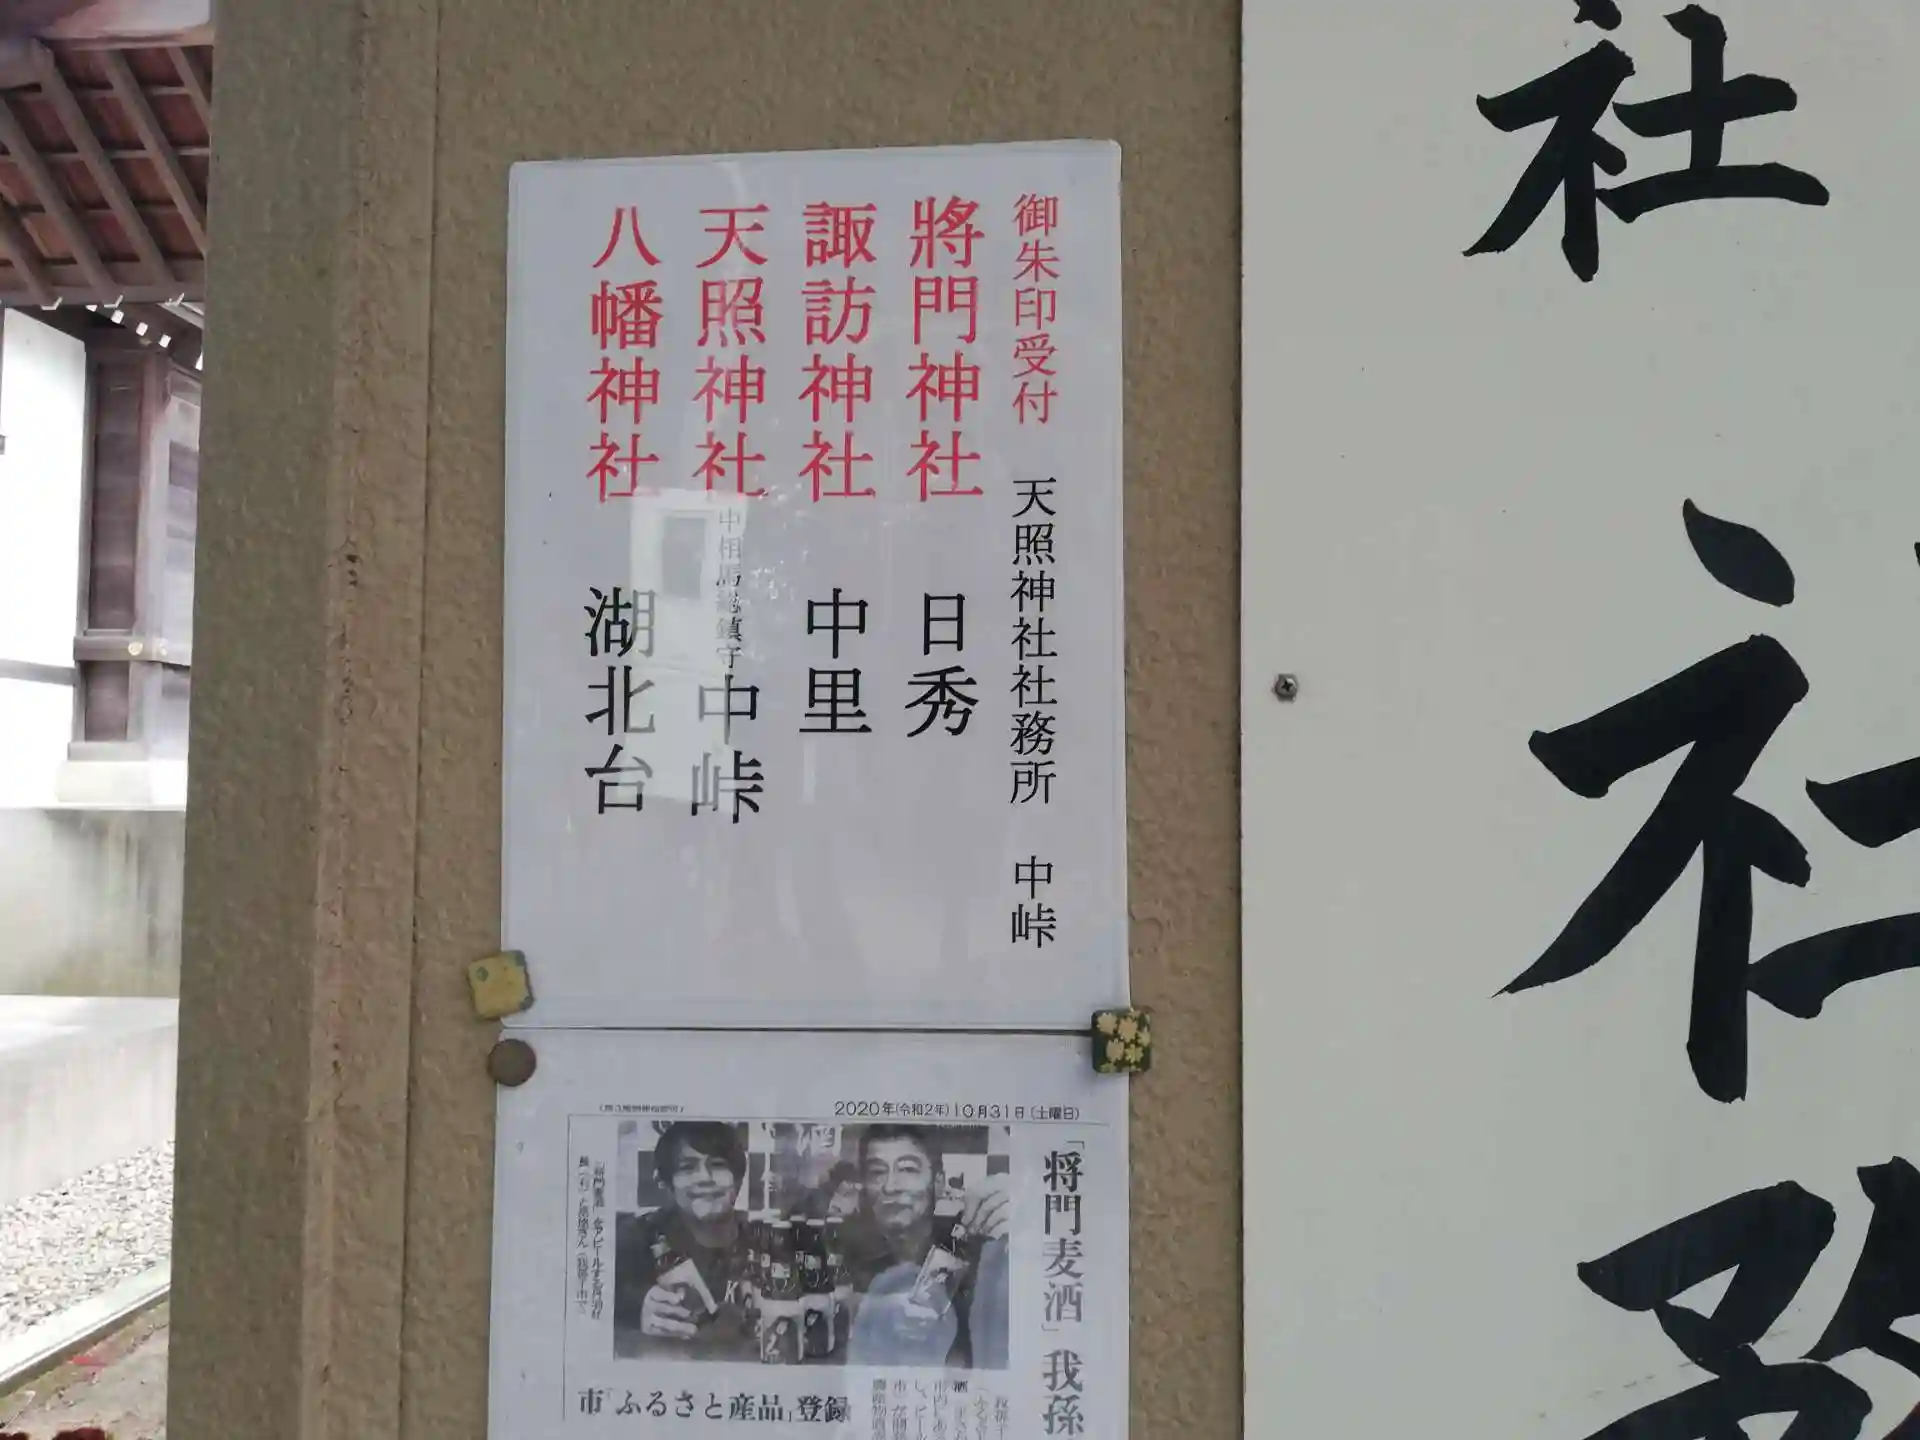 社
社
務
御朱印受付 天照神社社務所 中峠
將門神社 日秀
諏訪神社 中里
天照神社 中相馬総鎮守 中峠
八幡神社 湖北台
2020年(令和2年)10月31日(土曜日)
「将門麦酒」我孫
市「ふるさと産品」登録